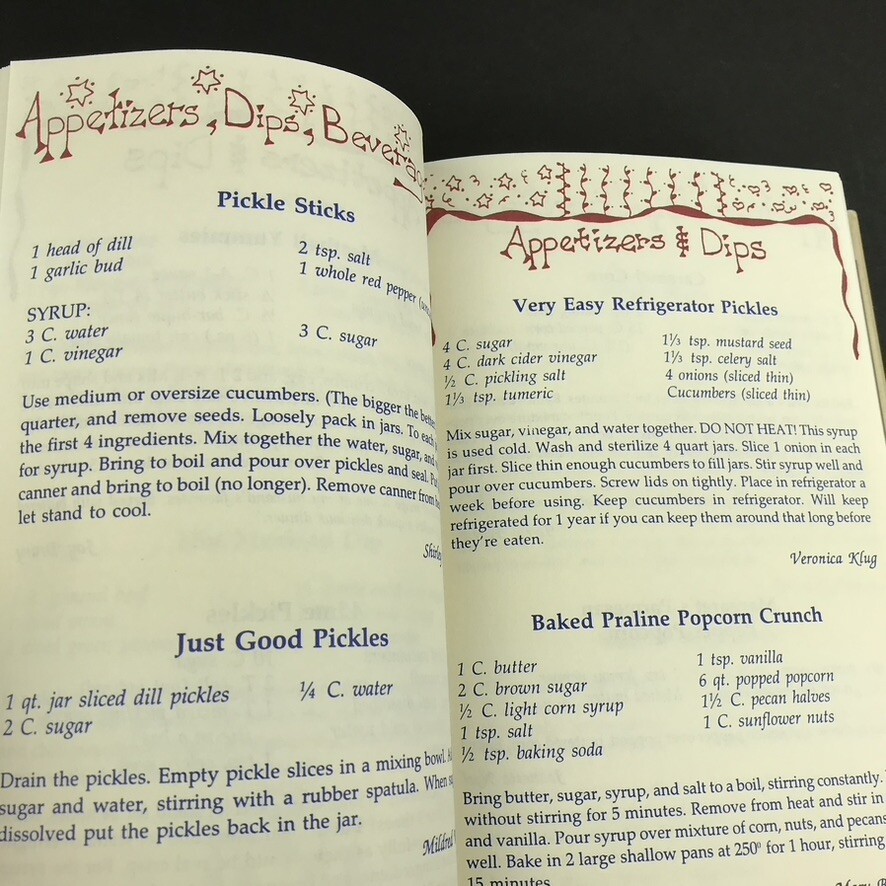 Appetizers, Dips,
Pickle Sticks
1 head of dill
1 garlic bud
2 tsp. salt
1 whole red pepper
SYRUP:
3 C. water
1 C. vinegar
3 C. sugar
Use medium or oversize cucumbers. (The bigger the
quarter, and remove seeds. Loosely pack in jars. To each
the first 4 ingredients. Mix together the water, sugar,
for syrup. Bring to boil and pour over pickles and seal.
canner and bring to boil (no longer). Remove canner from
let stand to cool.
Just Good Pickles
1 qt. jar sliced dill pickles
2 C. sugar
¼ C. water
Drain the pickles. Empty pickle slices in a mixing bowl.
sugar and water, stirring with a rubber spatula. When
dissolved put the pickles back in the jar.
Mildred
Appetizers & Dips
Very Easy Refrigerator Pickles
4 C. sugar
4 C. dark cider vinegar
½ C. pickling salt
1⅓ tsp. tumeric
1⅓ tsp. mustard seed
1⅓ tsp. celery salt
4 onions (sliced thin)
Cucumbers (sliced thin)
Mix sugar, vinegar, and water together. DO NOT HEAT! This syrup
is used cold. Wash and sterilize 4 quart jars. Slice 1 onion in each
jar first. Slice thin enough cucumbers to fill jars. Stir syrup well and
pour over cucumbers. Screw lids on tightly. Place in refrigerator a
week before using. Keep cucumbers in refrigerator. Will keep
refrigerated for 1 year if you can keep them around that long before
they're eaten.
Veronica Klug
Baked Praline Popcorn Crunch
1 C. butter
2 C. brown sugar
½ C. light corn syrup
1 tsp. salt
½ tsp. baking soda
1 tsp. vanilla
6 qt. popped popcorn
1½ C. pecan halves
1 C. sunflower nuts
Bring butter, sugar, syrup, and salt to a boil, stirring constantly.
without stirring for 5 minutes. Remove from heat and stir in
and vanilla. Pour syrup over mixture of corn, nuts, and pecans
well. Bake in 2 large shallow pans at 250º for 1 hour, stirring
15 minutes